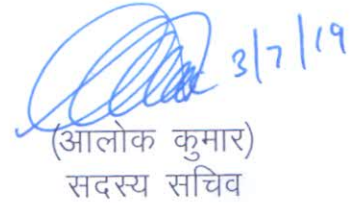 3/7/19
(आलोक कुमार)
सदस्य सचिव